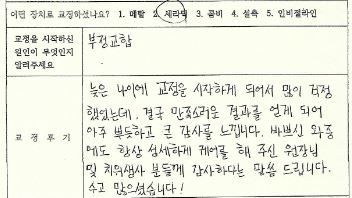 어떤 장치로 교정하셨나요? 1. 메탈 2. 세라믹 3. 콤비 4. 설측 5. 인비절라인
교정을 시작하신
원인이 무엇인지
알려주세요
부정교합
교 정 후 기
늦은 나이에 교정을 시작하게 되어서 많이 걱정
했었는데, 결국 만족스러운 결과를 얻게 되어
아주 뿌듯하고 큰 감사를 느낍니다. 바쁘신 와중
에도 항상 섬세하게 케어를 해 주신 원장님
및 치위생사 분들께 감사하다는 말씀 드립니다.
수고 많으셨습니다!